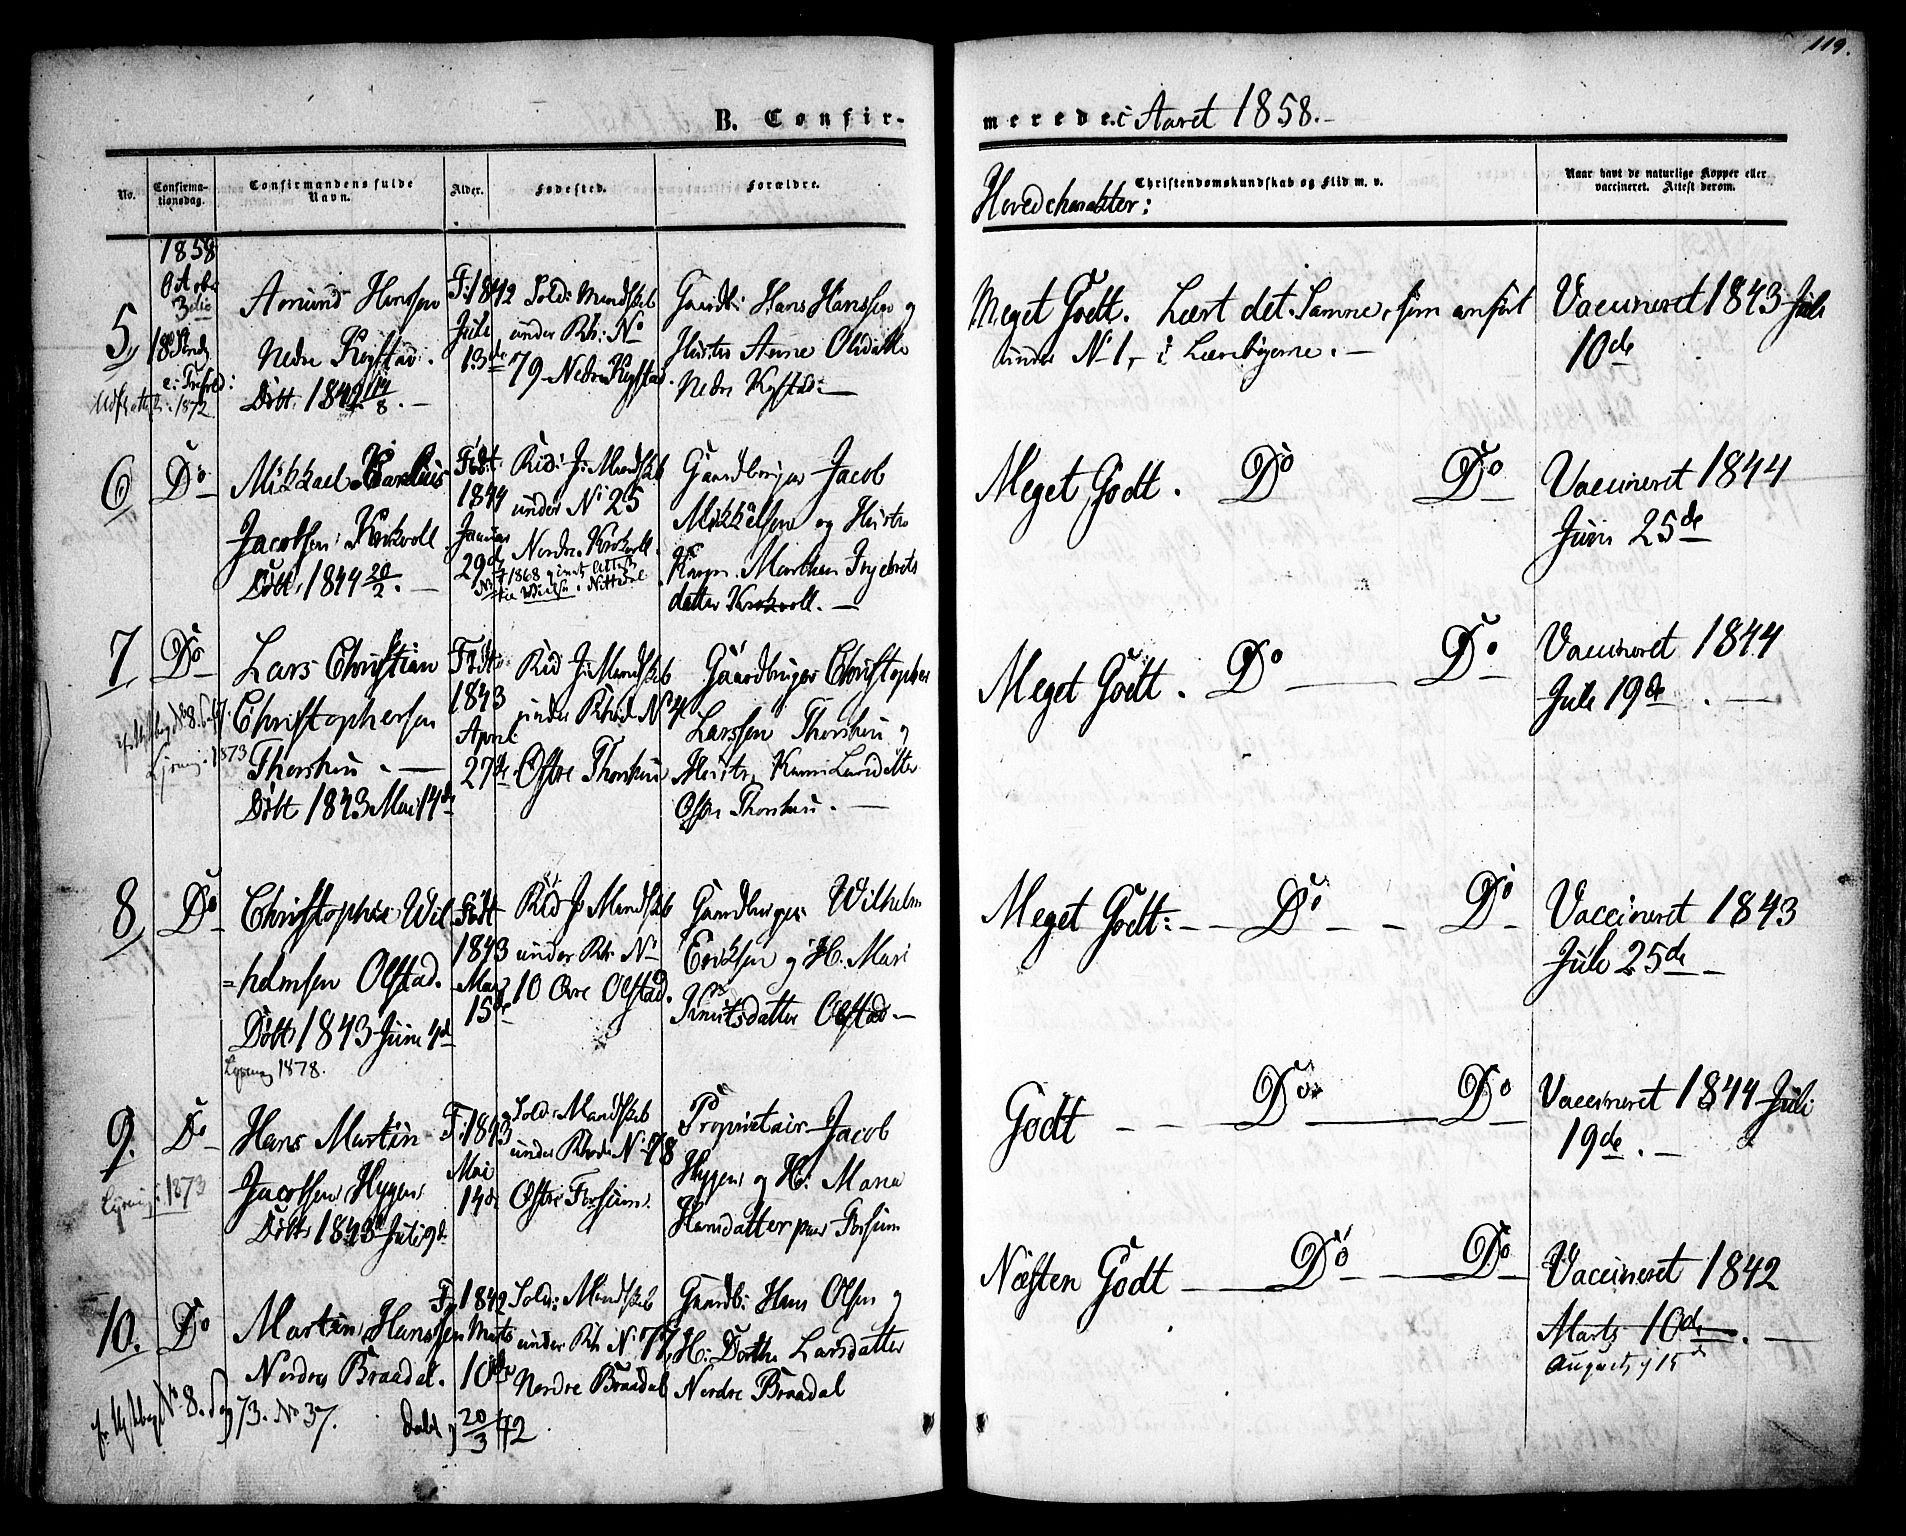 119.
B. Confirmerede i Aaret 1858.
No.
Confirmationsdag.
Confirmandens fulde Navn.
Alder.
Fødested.
Forældre.
Christendomskundskab og Flid m. v.
Hovedcharakter:
Naar havt de naturlige Kopper eller vaccineret. Attest derom.
1858
Octobr
3die
18de Søndg
e: Trefold:
5,
Amund Hanssen
Nedre Kystad.
Døbt. 1842 14/8.
F: 1842
Juli
13de
Sold: Mandskab
under Rh: No
79 Nedre Kystad.
Gaardb: Hans Hanssen og
Hustru Anne Olsdatter
Nedre Kystad:
Meget Godt. Lært det Samme, som anført
under No 1, i Lærebøgerne.
Vaccineret 1843 Juli
10de
1872
6,
Do
Mikkael Karelius
Jacobsen Krokvoll
Døbt, 1844 20/2.
Født:
1844
Januar
29de
Rid: J: Mandskab
under No 25
Nordre Krokvoll.
Nittedal
Gaardbruger Jacob
Mikkelsen og Hustru
Karen Marthea Ingebrets
datter Krokvoll.
Meget Godt. Do Do
Vaccineret 1844
Juni 25de
7,
Do
Lars Christian
Christophersen
Thorshou.
Døbt 1843 Mai 14de
Født
1843
April
27de
Rid J: Mandskab
under Rhode No 4
Østre Thorshou
Gaardbruger Christopher
Larssen Thorshou og
Hustru Karen Larsdatter
Østre Thorshou.
Meget Godt. Do Do
Vaccineret 1844
Juli 19de.
1873
8,
Do
Christopher Wil
=helmsen Olstad.
Døbt 1843 Juni 4de
1878.
Født
1843
Mai
15de
Rid J: Mandskab
under Rh: No
10 Øvre Olstad.
Gaardbruger Wilhelm
Eriksen og H. Mari
Knutsdatter Olstad
Meget Godt: Do Do
Vaccineret 1843
Juli 25de
9.
Do
Hans Martin
Jacobsen Hygen
Døbt 1843 Juli 9de
F: 1843
Mai
14de
Sold: Mandskab
under Rhode No 78
Østre Forsum
Proprietair Jacob
Hygen og H: Maria
Hansdatter paa Forsum
Godt Do Do
Vaccineret 1844 Juli
19de.
1873
10.
Do
Martin Hanssen
Nordre Braadal.
F. 1842
Marts
10de
Sold: Mandskab
under Rh No 77,
Nordre Braadal
Gaardb: Hans Olsen og
H: Dorthe Larsdatter
Nordre Braadal
Næsten Godt Do Do
Vaccineret 1842
Marts 10de.
August 15de
No 8. 73. No 37.
Døbt 20/3 42.